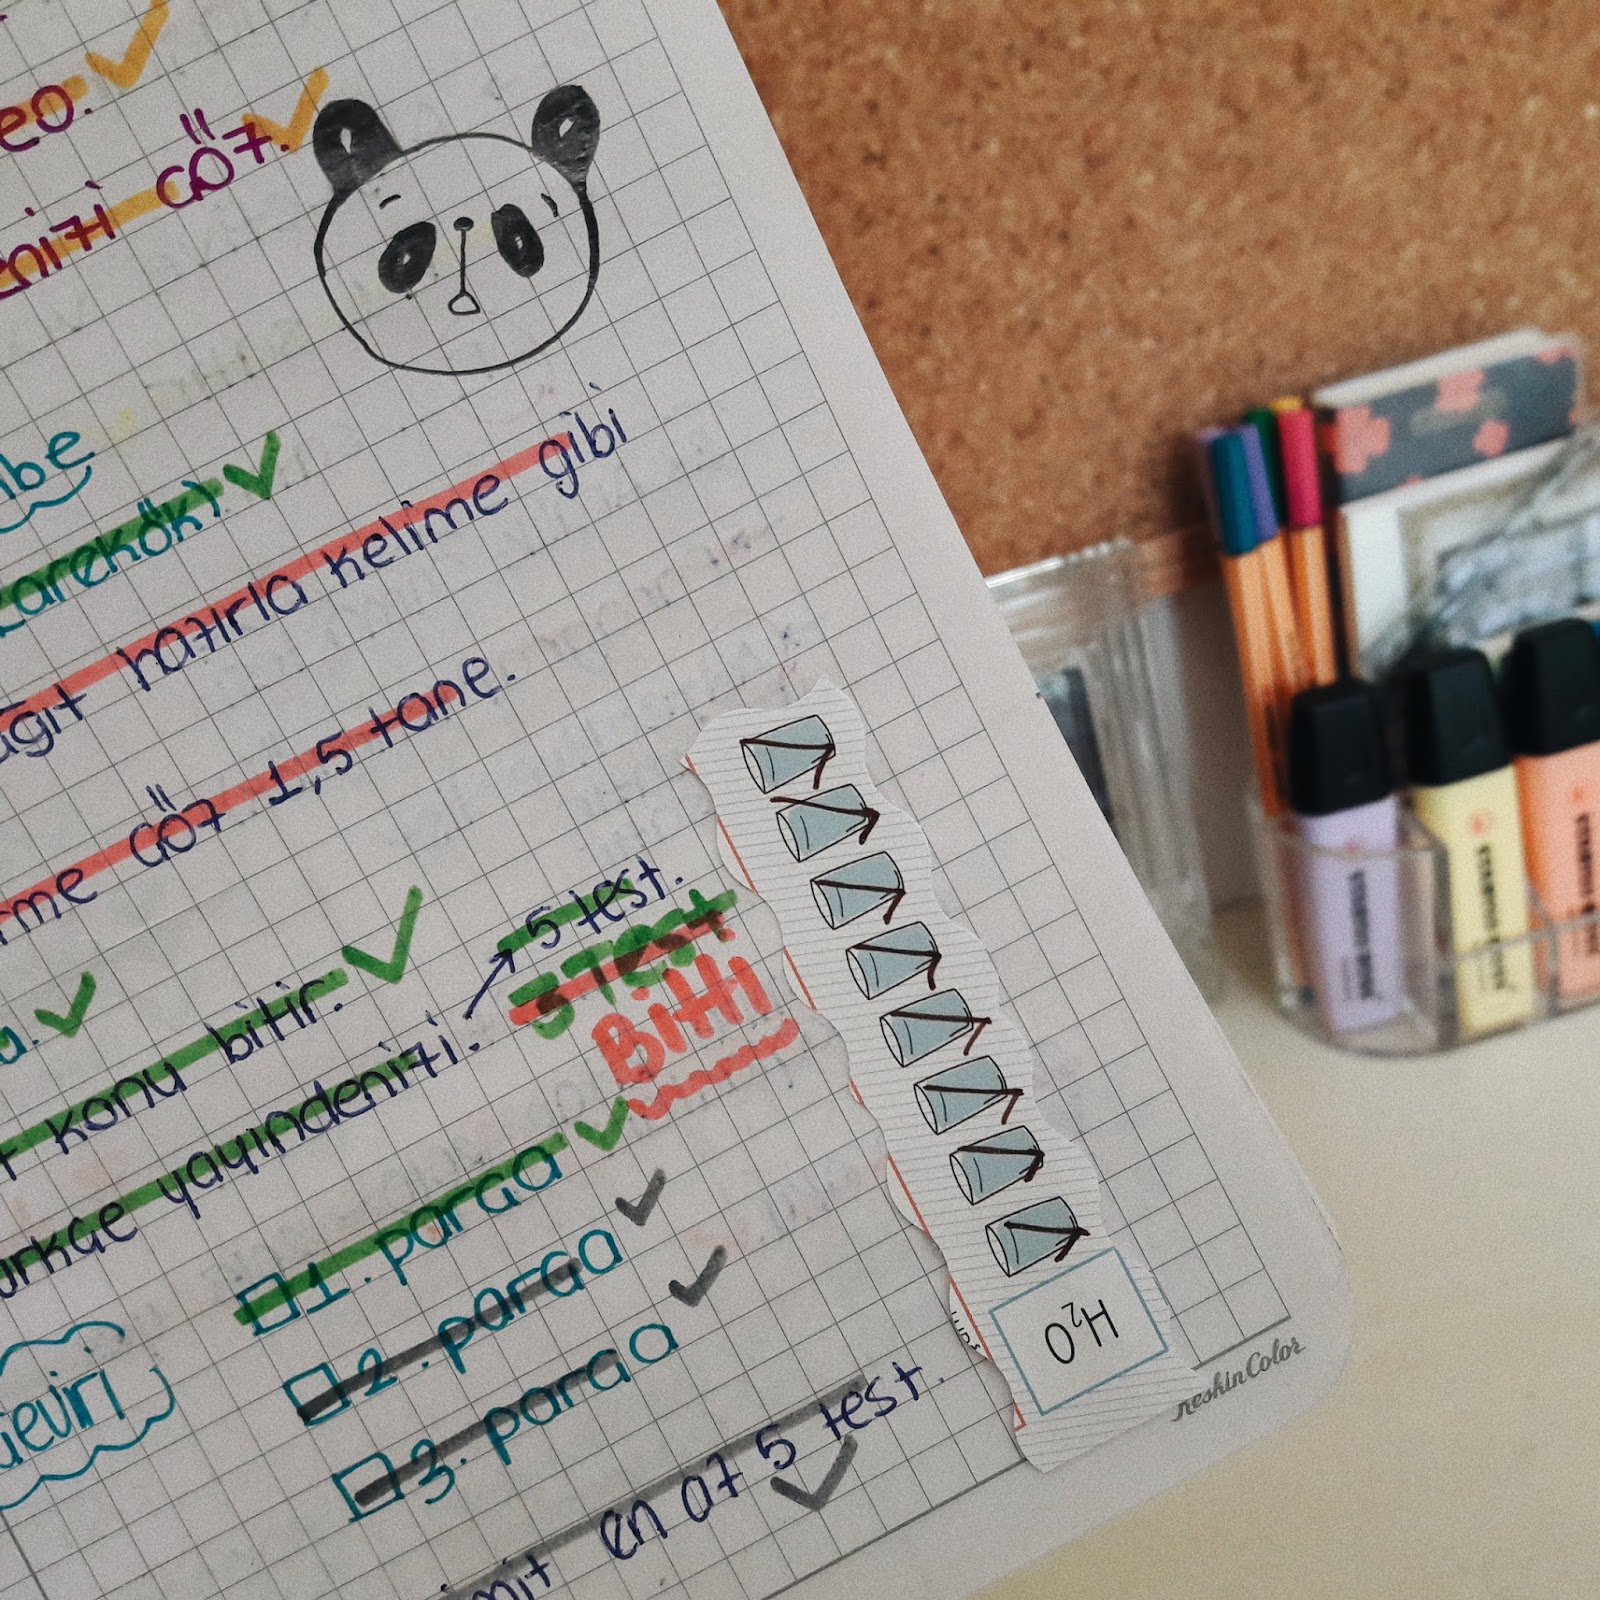 eo.
enizi çöz.
be
karekök)
ağıt hazırla kelime gibi
rme çöz 1,5 tane.
a.
konu bitir.
ürkçe yayındenizi. 5 test.
5 TEST
Bitti
1. parça
2. parça
3. parça
Çeviri
mit en az 5 test.
H₂O
KeskinColor